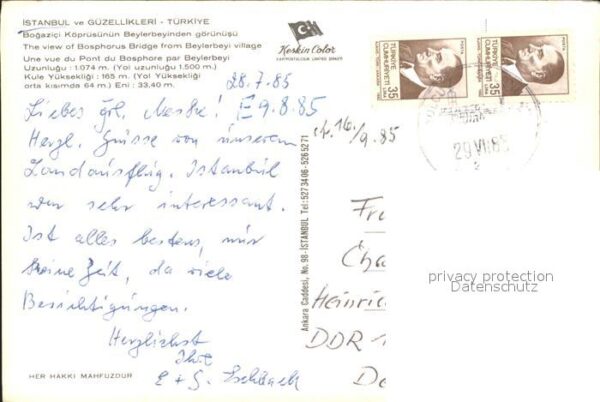 İSTANBUL ve GÜZELLİKLERİ - TÜRKİYE
Boğaziçi Köprüsünün Beylerbeyinden görünüşü
The view of Bosphorus Bridge from Beylerbeyi village
Une vue du Pont du Bosphore par Beylerbeyi
Uzunluğu : 1.074 m. (Yol uzunluğu 1.500 m.)
Kule Yüksekliği : 165 m. (Yol Yüksekliği
orta kısımda 64 m.) Eni : 33,40 m.
Keskin Color
28.7.85
Liebes Frl.
E 9.8.85
Herzl. Grüsse von unserem
Landausflug. Istanbul
war sehr interessant.
Ist alles bestens, nur
keine Zeit, da viele
Besichtigungen.
Herzlichst
Ihre
E + G.
HER HAKKI MAHFUZDUR
Ankara Caddesi, No. 98-İSTANBUL Tel: 5273406-5265271
16/9.85
TÜRKİYE CUMHURİYETİ
POSTA
35 LİRA
TÜRKİYE CUMHURİYETİ
POSTA
35 LİRA
29 VII 85
Fr
Cha
Heinri
DDR
De
privacy protection
Datenschutz